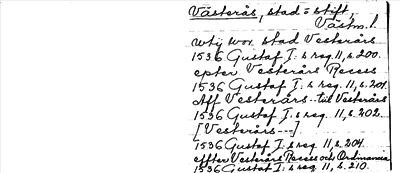 Västerås, stad o stift,
Västm. l.
utij wor stad Vesterårs
1536 Gustaf I:s reg. 11, s. 200.
epter Vesterårs Recess
1536 Gustaf I:s reg. 11, s. 201.
Aff Vesterårs til Vesterårs
1536 Gustaf I:s reg. 11, s. 202.
[Vesterårs ---]
1536 Gustaf I:s reg. 11, s. 204.
effter Vesterårs Recess och Ordinancia
1536 Gustaf I:s reg. 11, s. 210.